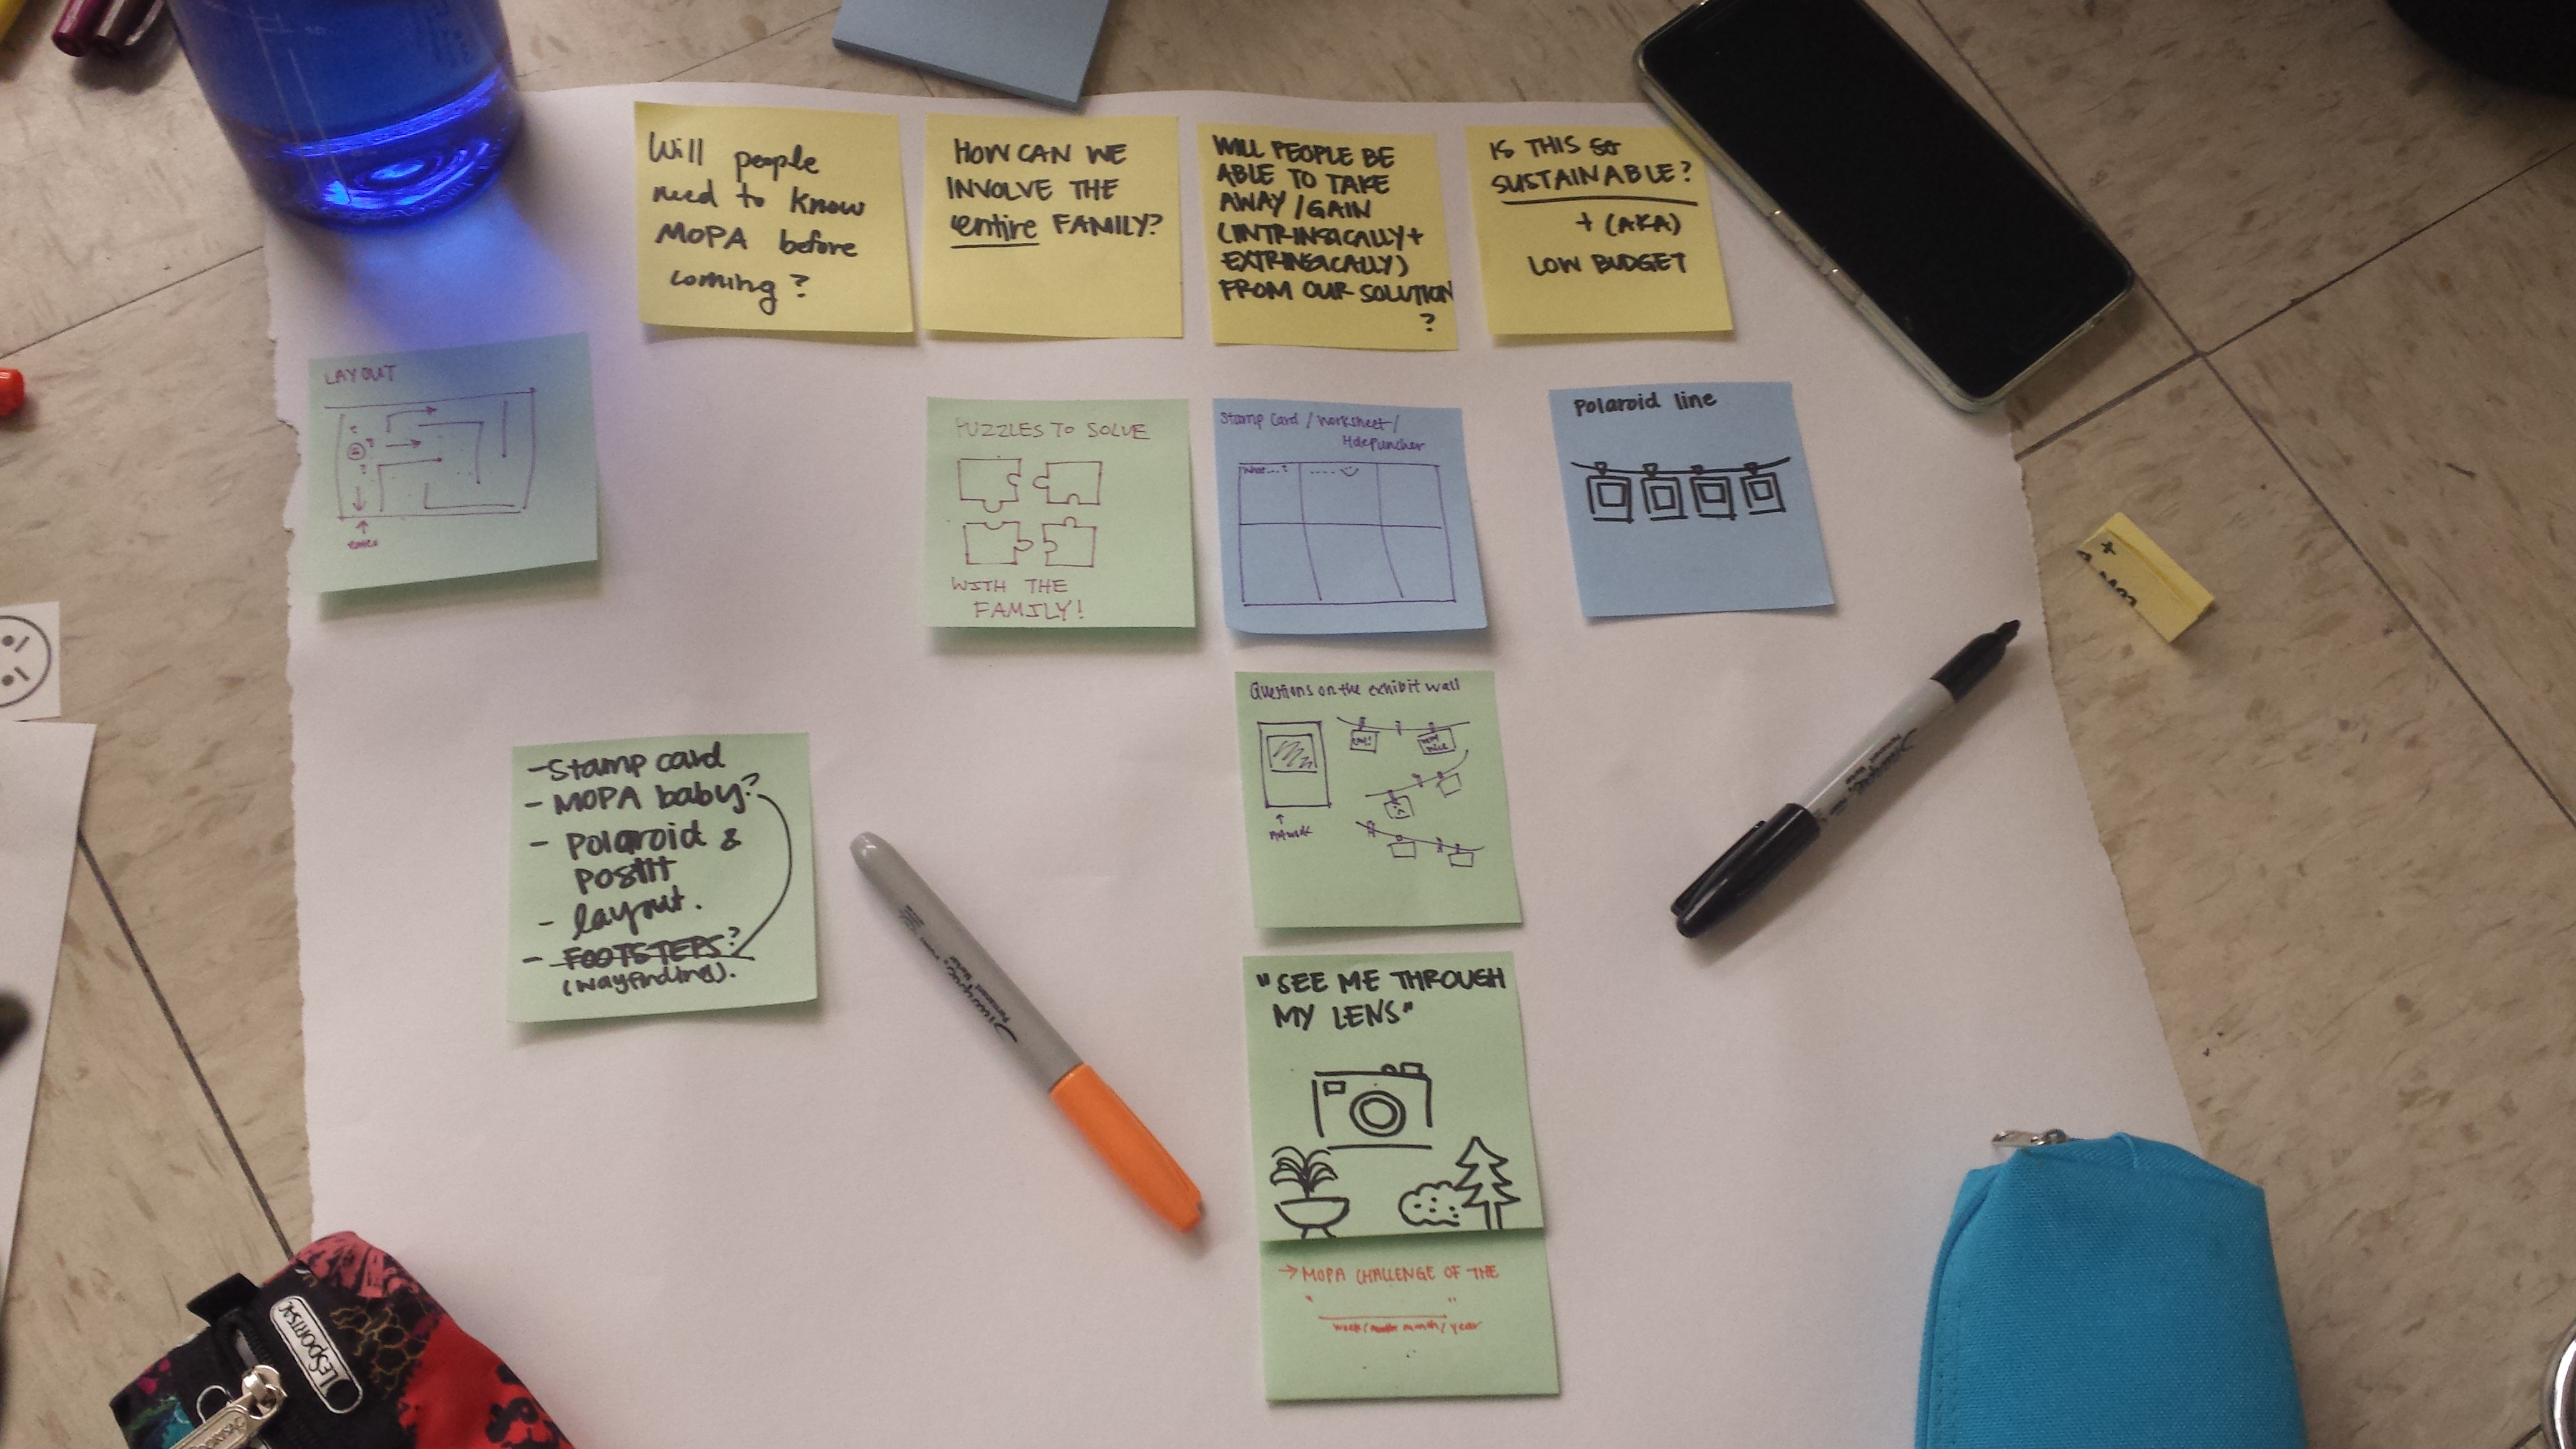 Will people
need to know
MOPA before
coming?
HOW CAN WE
INVOLVE THE
entire FAMILY?
WILL PEOPLE BE
ABLE TO TAKE
AWAY / GAIN
(INTRINSICALLY +
EXTRINSICALLY)
FROM OUR SOLUTION
?
IS THIS
SUSTAINABLE?
+ (AKA)
LOW BUDGET
LAYOUT
enter
PUZZLES TO SOLVE
WITH THE
FAMILY!
Stamp Card / Worksheet /
Holepuncher
What....?
Polaroid line
Questions on the exhibit wall
Artwork
- Stamp card
- MOPA baby?
- Polaroid &
Postit
- layout.
- FOOTSTEPS?
(wayfinding).
"SEE ME THROUGH
MY LENS"
→ MOPA CHALLENGE OF THE
" "
week / month / year
Sharpie
Permanent Marker
Sharpie
Permanent Marker
LESPORTSAC